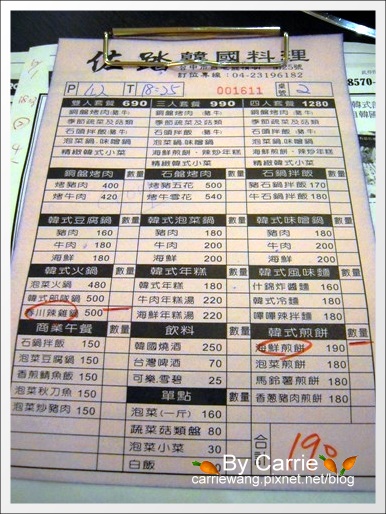 韓國料理
訂位專線：04-23196182
P 12 T 18:25 001611 桌號 2
8570-
雙人套餐 690 三人套餐 990 四人套餐 1280
季節蔬菜及菇類 季節蔬菜及菇類 季節蔬菜及菇類
精緻韓式小菜
精緻韓式小菜 精緻韓式小菜
銅盤烤肉 數量 石鍋烤肉 數量 石鍋拌飯 數量
烤豬肉 400 烤豬五花 500 豬石鍋拌飯 170
烤牛肉 420 烤牛雪花 540 牛石鍋拌飯 180
韓式豆腐鍋 數量 韓式泡菜鍋 數量 韓式味噌鍋 數量
豬肉 160 豬肉 180 豬肉 180
牛肉 180 牛肉 200 牛肉 200
海鮮 180 海鮮 200 海鮮 200
韓式火鍋 數量 韓式年糕 數量 韓式風味麵 數量
泡菜火鍋 480 韓式年糕 180 什錦炸醬麵 180
韓式部隊鍋 500 牛肉年糕湯 220 韓式冷麵 180
春川辣雞鍋 500 海鮮年糕湯 220 嗶嗶辣拌麵 180
商業午餐 數量 飲料 數量 韓式煎餅 數量
石鍋拌飯 150 韓國燒酒 250 海鮮煎餅 190
泡菜豆腐鍋 150 台灣啤酒 70 泡菜煎餅 180
香煎鯖魚飯 150 可樂.雪碧 25 馬鈴薯煎餅 180
泡菜秋刀魚 150 單點 香蔥豬肉煎餅 180
泡菜炒豬肉 150 泡菜(一斤) 160
蔬菜菇類盤 80
泡菜小菜 30
白飯
合計 190
By Carrie
carriewang.pixnet.net/blog